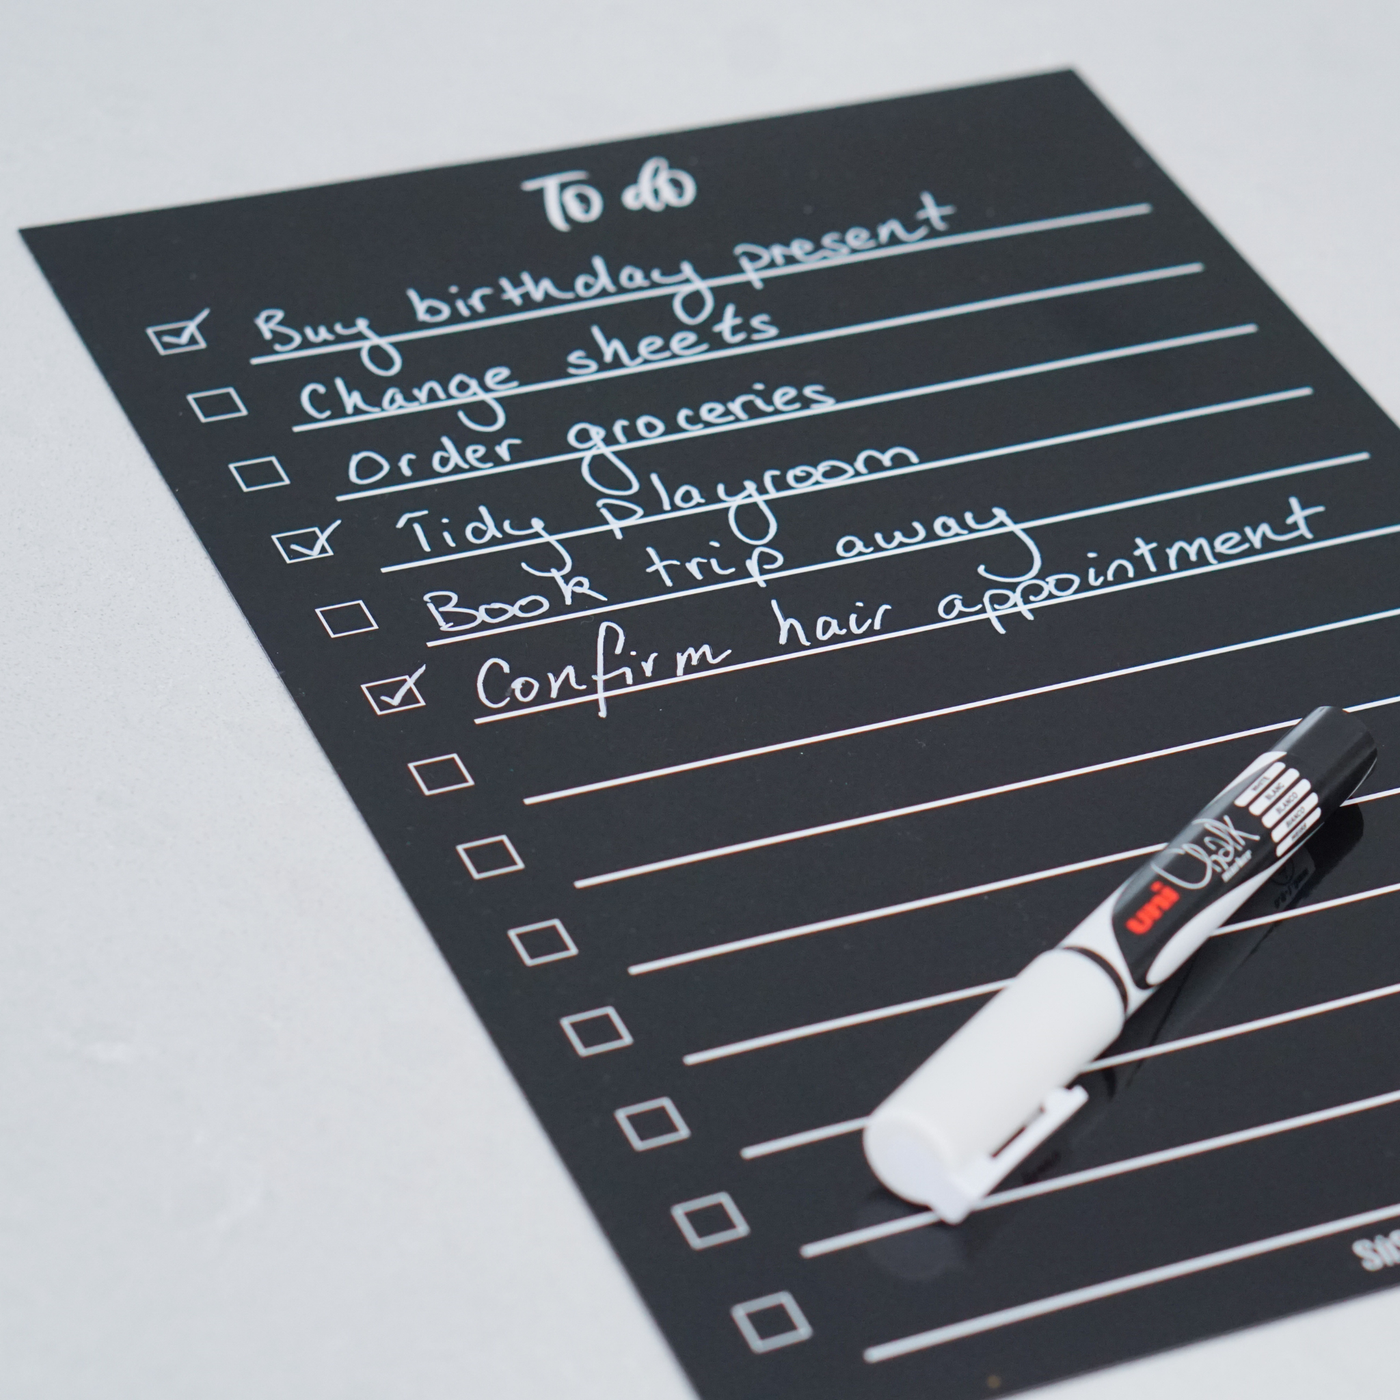 To do
Buy birthday present
Change sheets
Order groceries
Tidy playroom
Book trip away
Confirm hair appointment
uni Chalk
marker
WHITE
BLANC
BLANCO